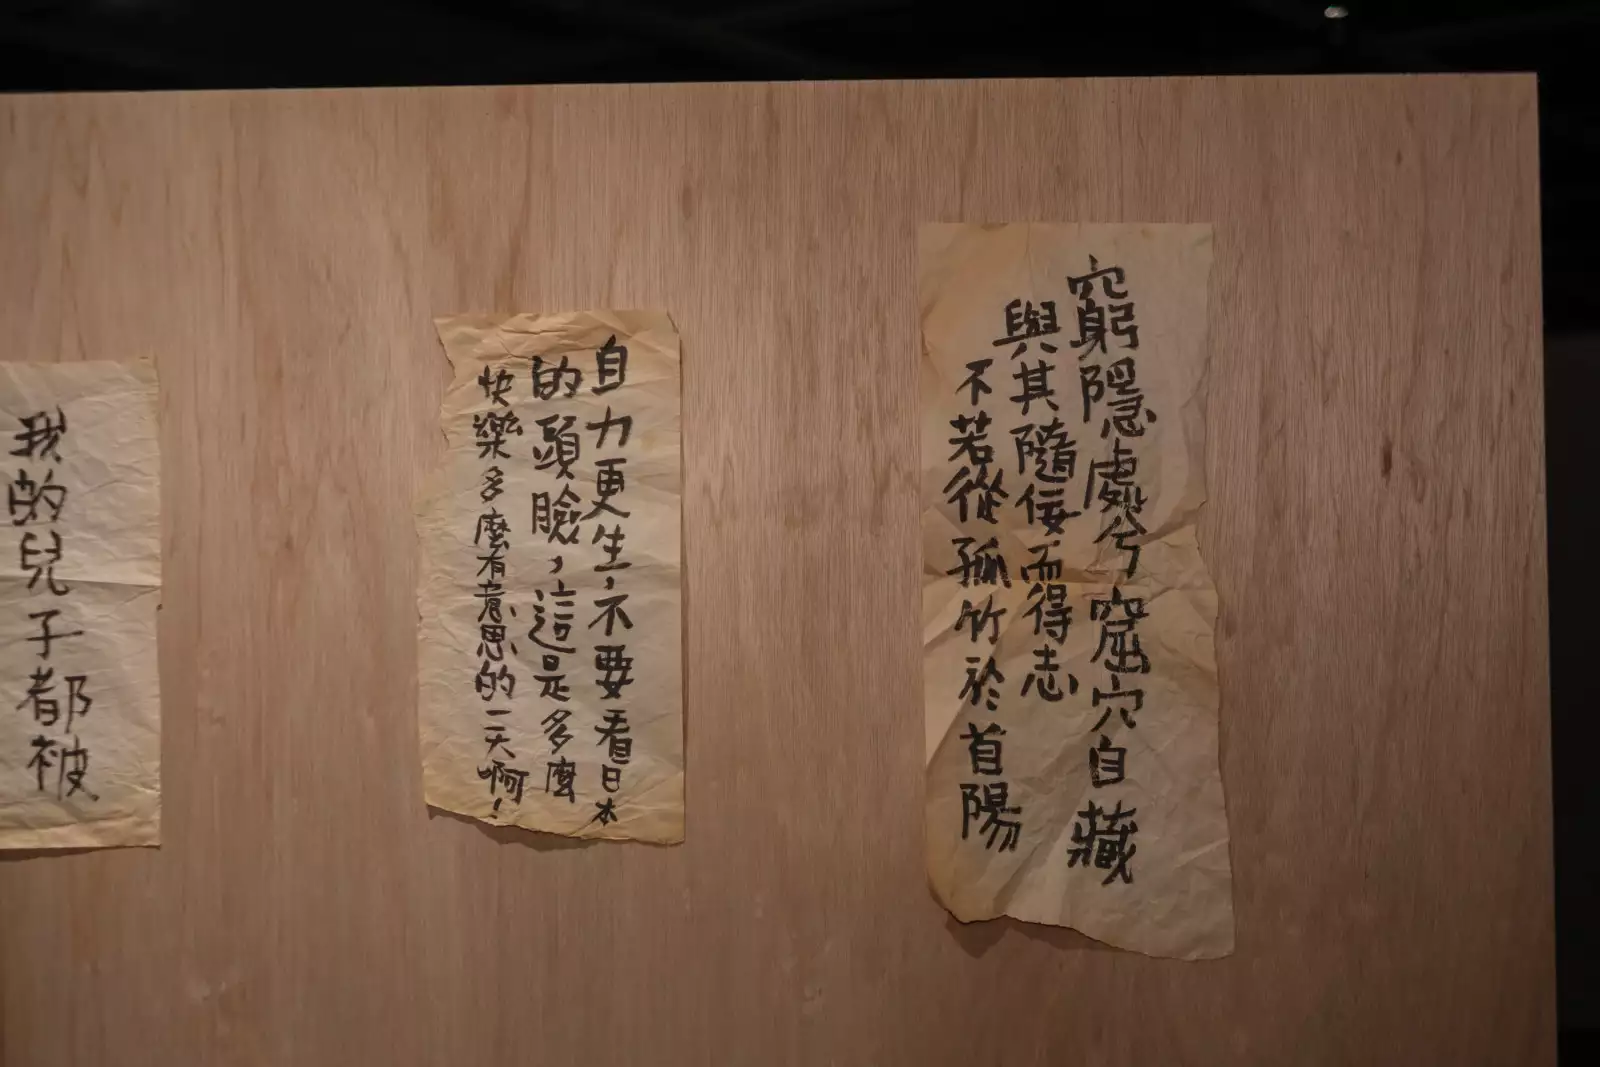 窮隱處兮窟穴自藏
與其隨佞而得志
不若從孤竹於首陽
自力更生，不要看日本
的頭臉，這是多麼
快樂多麼有意思的一天啊！
我的兒子都被